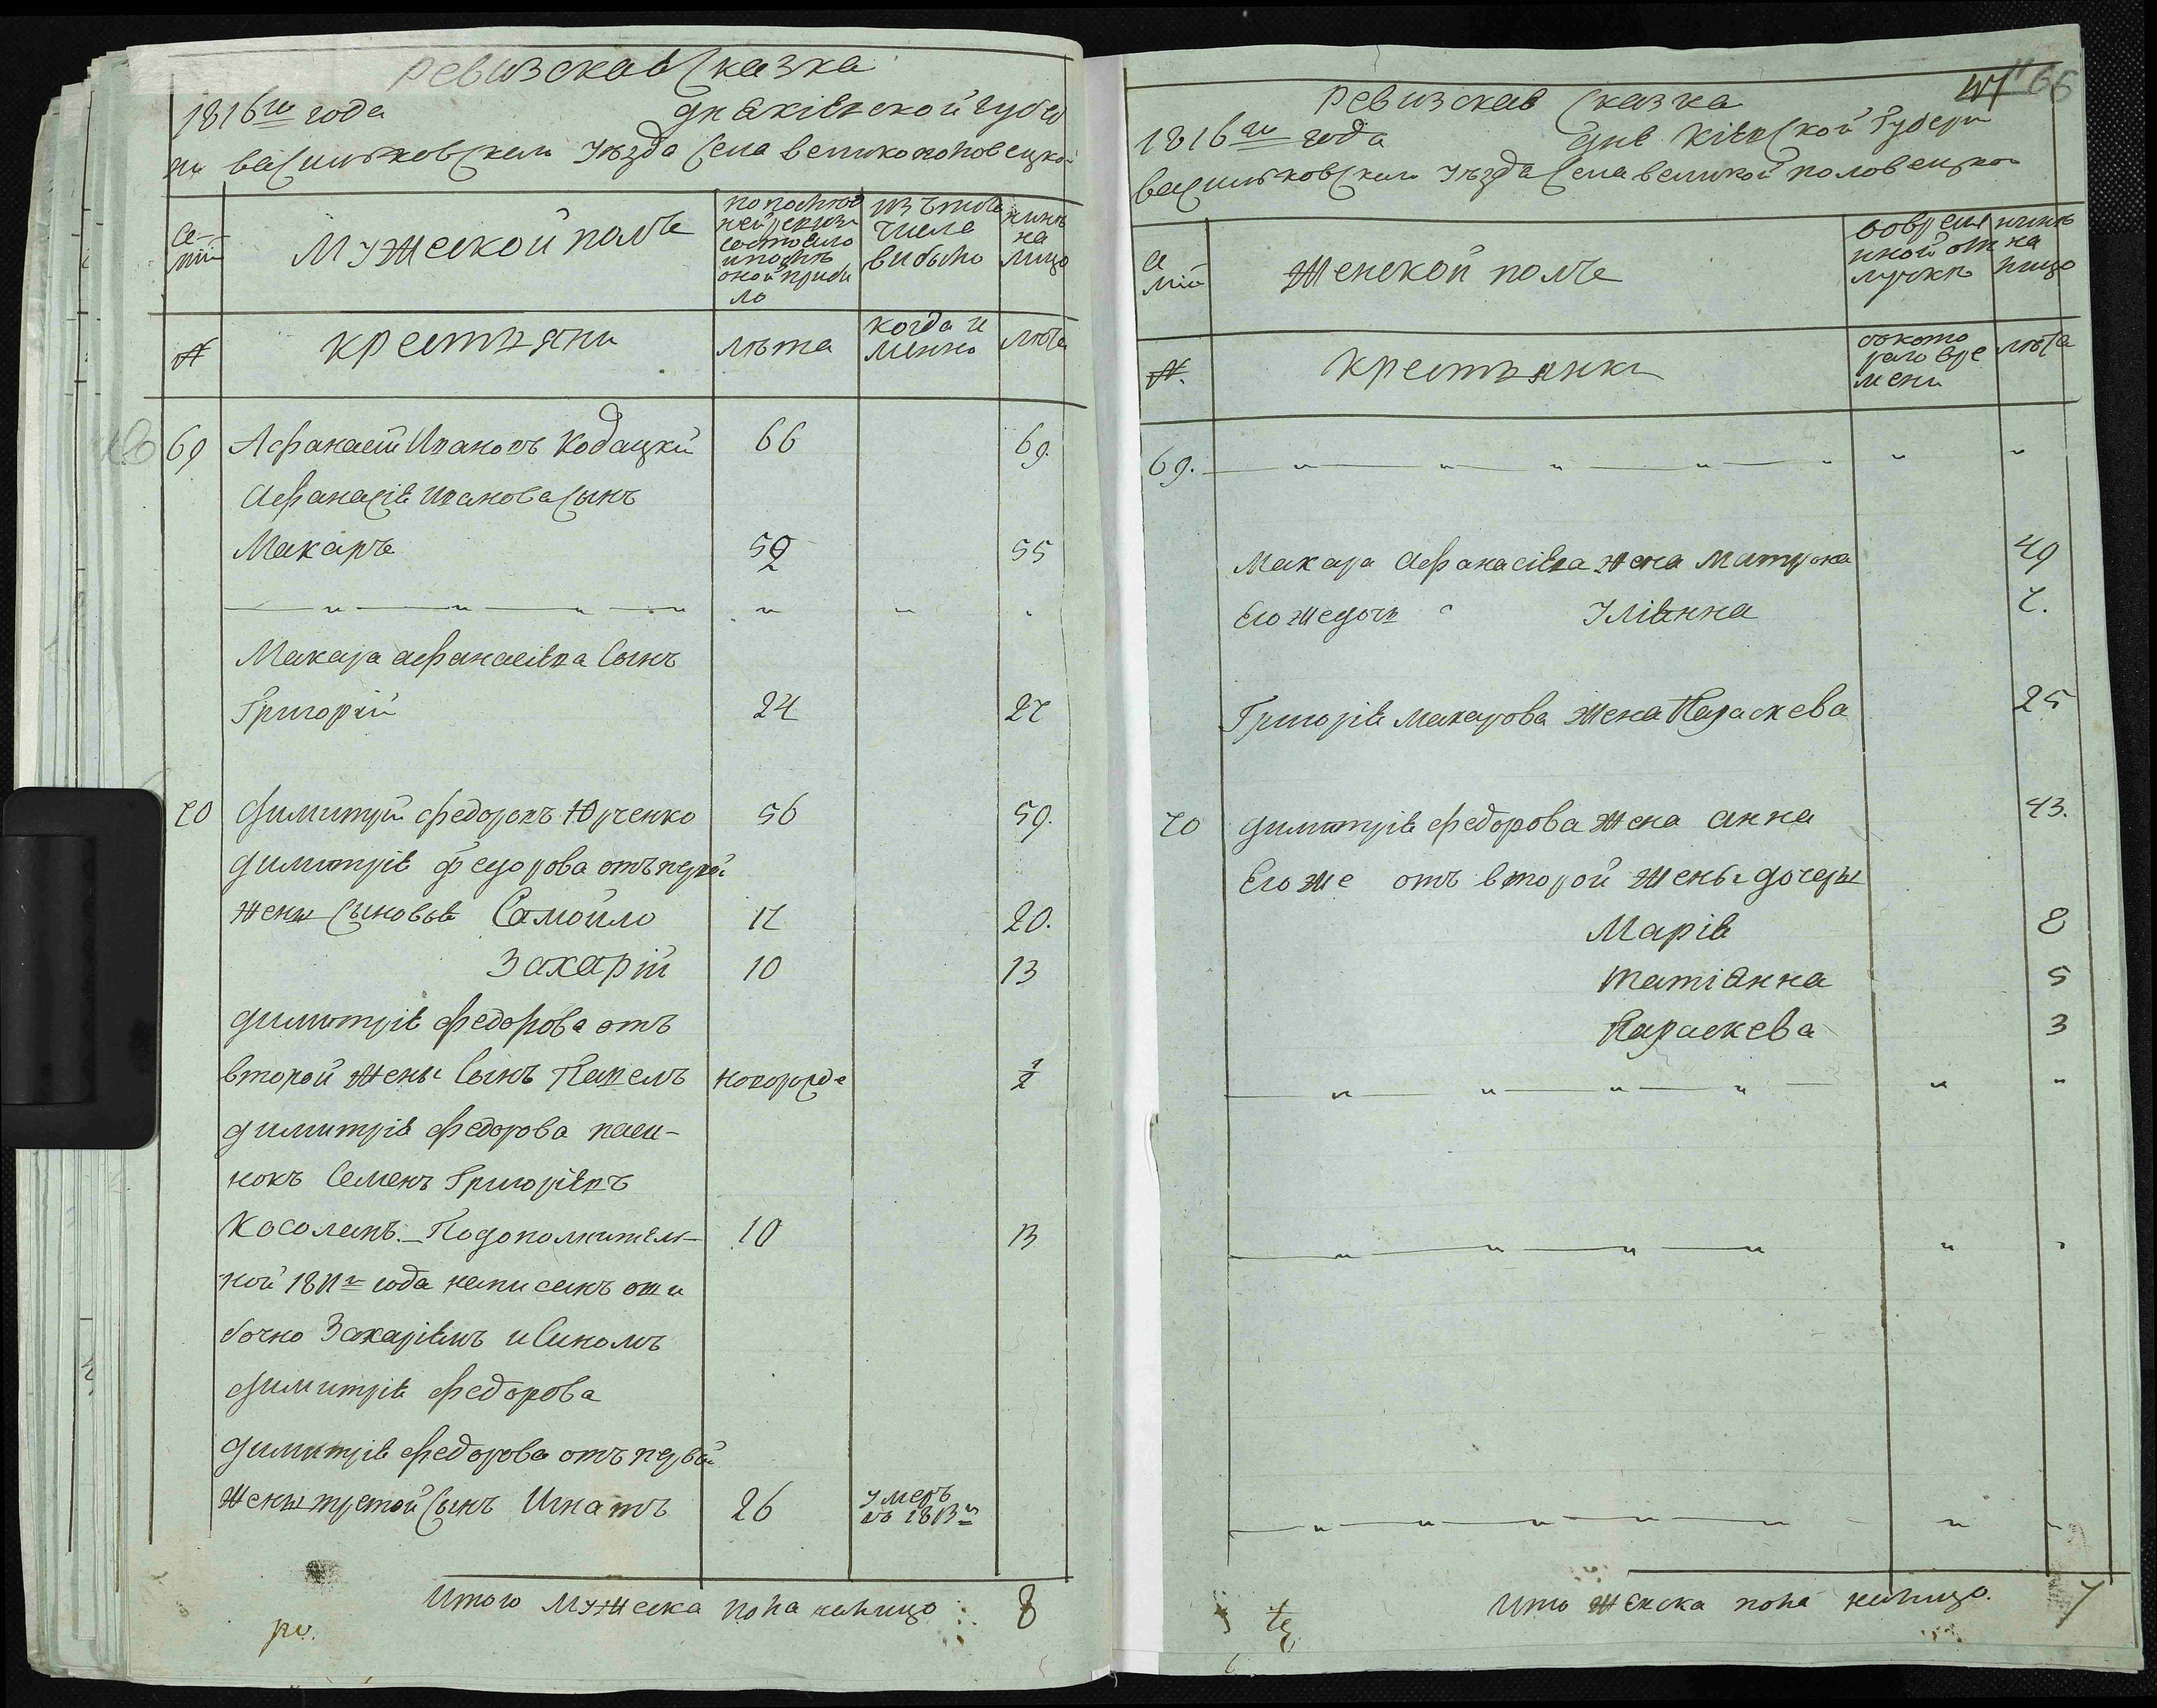 Ревизская Сказка
1816го года дня Кіевской губер
ни васильковскаго уѣзда Села великополовецкой
Се-
міи
Мужеской полъ
по послѣд
ней ревизи
состояло
и послѣ
оной прибы
ло
изъ того
числа
выбыло
нинѣ
на
лицо
№
крестьяни
лѣта
когда и
менно
лѣта
69 Афанасій Ивановъ Кодацкій 66 69.
Афанасія Иванова Сынъ
Макаръ 52 55
— „ — „ — „ — „ „ „ „
Макара афанасіева Сынъ
Григорій 24 27
70 Димитрій федоровъ Юрченко 56 59.
димитрія федорова отъ первой
жены Сыновья Самойло 17 20.
Захарій 10 13
димитрія федорова отъ
второй жены Сынъ Павелъ новорожде 1/2
димитрія федорова пасы-
нокъ Семенъ Григоріевъ
Косолапъ. — По дополнитель- 10 13
ной 1811го года написанъ оши
бочно Захаріемъ и Сыномъ
димитрія федорова
димитрія федорова отъ первой
жены третой Сынъ Игнатъ 26 умеръ
въ 1813го
Итого мужеска пола налицо 8
66
Ревизская Сказка
1816го года дня Кіевской Губерн
васильковскаго уѣзда Села великой половецкой
Се
міи
Женской полъ
во времен
ной от
лучкѣ
нинѣ
на
лицо
№.
Крестьянки
съ кото
раго вре
мени
лѣта
69. — „ — „ — „ — „ — „ „ „
Макара Афанасіева жена Матрона 49
Его же дочь Уліянна 7.
Григорія макарова жена Параскева 25
70 димитрія федорова жена анна 43.
Его же отъ второй жены дочеры
Марія 8
татіянна 5
Параскева 3
— „ — „ — „ — „ — „ „
— „ — „ — „ — „ „ „
— „ — „ — „ — „ — „ — „ „
Итого женска пола налицо. 7